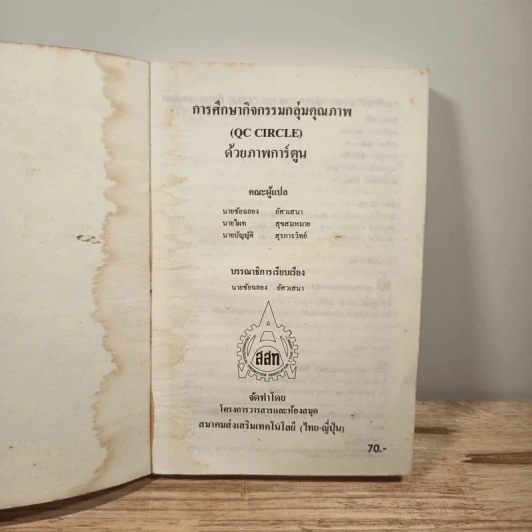 การศึกษากิจกรรมกลุ่มคุณภาพ
(QC CIRCLE)
ด้วยภาพการ์ตูน
คณะผู้แปล
นายชัยฉลอง อัศวเสนา
นายไผท สุขสมหมาย
นายบัญญัติ สุรการวิทย์
บรรณาธิการเรียบเรียง
นายชัยฉลอง อัศวเสนา
สสท
จัดทำโดย
โครงการวารสารและห้องสมุด
สมาคมส่งเสริมเทคโนโลยี (ไทย-ญี่ปุ่น)
70.-